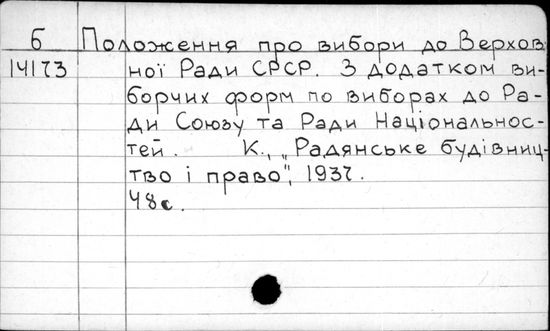 Б Положення про вибори до Верхов-
14173 ної Ради СРСР. З додатком ви-
борчих форм по виборах до Ра-
ди Союзу та Ради Національнос-
тей. К., „Радянське будівниц-
тво і право", 1937.
48с.